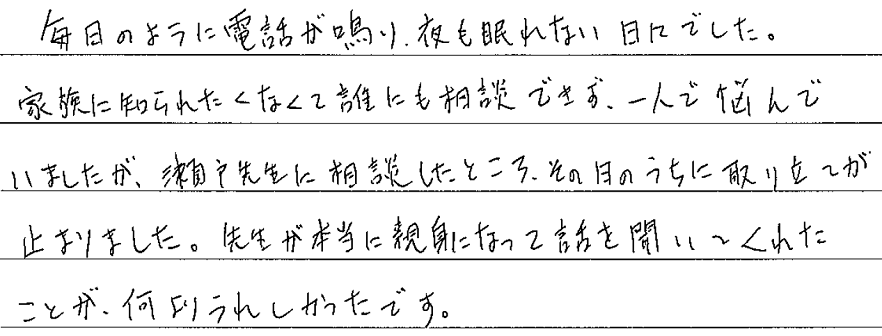 毎日のように電話が鳴り、夜も眠れない日々でした。
家族に知られたくなくて誰にも相談できず、一人で悩んで
いましたが、瀬戸先生に相談したところ、その日のうちに取り立てが
止まりました。先生が本当に親身になって話を聞いてくれた
ことが、何よりうれしかったです。